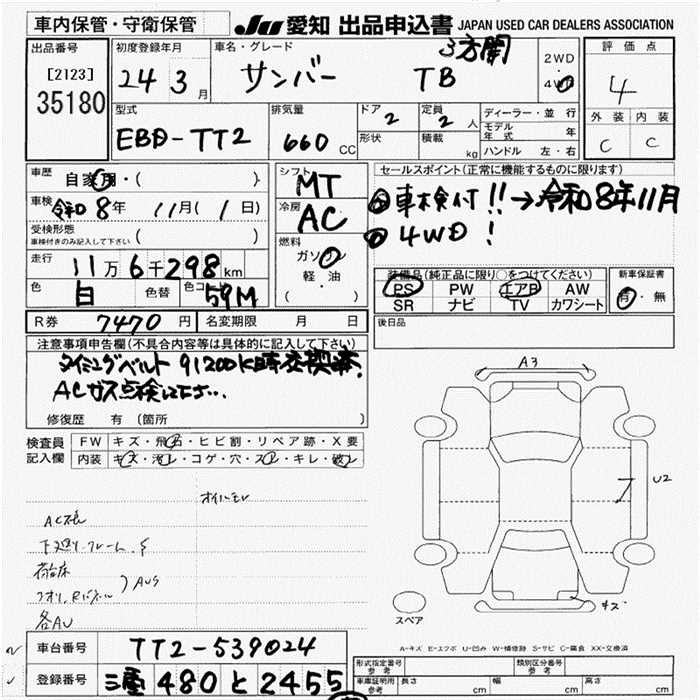 車内保管・守衛保管
JU 愛知 出品申込書 JAPAN USED CAR DEALERS ASSOCIATION
出品番号
[2123]
35180
初度登録年月
24年 3月
車名・グレード
サンバー TB 3方開
2WD
4WD
評価点
4
外装 内装
C C
型式
EBD-TT2
排気量
660 CC
ドア
2
形状
定員
2人
積載
kg
ディーラー・並行
モデル年式 年
ハンドル 左・右
車歴
自家用・( )
車検
令和8年 11月( 1日)
受検形態
車検付きのみ記入して下さい ( )
走行
11万6千298km
色
白 色替 色コ 59M
シフト
MT
冷房
AC
燃料
ガソリン
軽・油
( )
セールスポイント(正常に機能するものに限ります)
◎車検付!!→令和8年11月
◎4WD!
装備品(純正品に限り○をつけてください)
PS PW エアB AW
SR ナビ TV カワシート
新車保証書
有・無
R券 7470円 名変期限 月 日
後日品
注意事項申告欄(不具合内容等は具体的に記入して下さい)
タイミングベルト 91200K時交換済.
ACガス点検
修復歴 有 (箇所 )
検査員
記入欄
FW キズ・飛石・ヒビ割・リペア跡・X要
内装 キズ・汚れ・コゲ・穴・スレ・キレ・破レ
オイルモレ
AC
荷台床
AUS
各AU
A3
U2
キズ
スペア
A-キズ E-エクボ U-凹み W-補修跡 S-サビ C-腐食 XX-交換済
車台番号 TT2-539024
登録番号 三重 480 と 2455
形式指定番号
参考
類別区分番号
参考
車庫証明用
参考
長さ cm 幅 cm 高さ cm